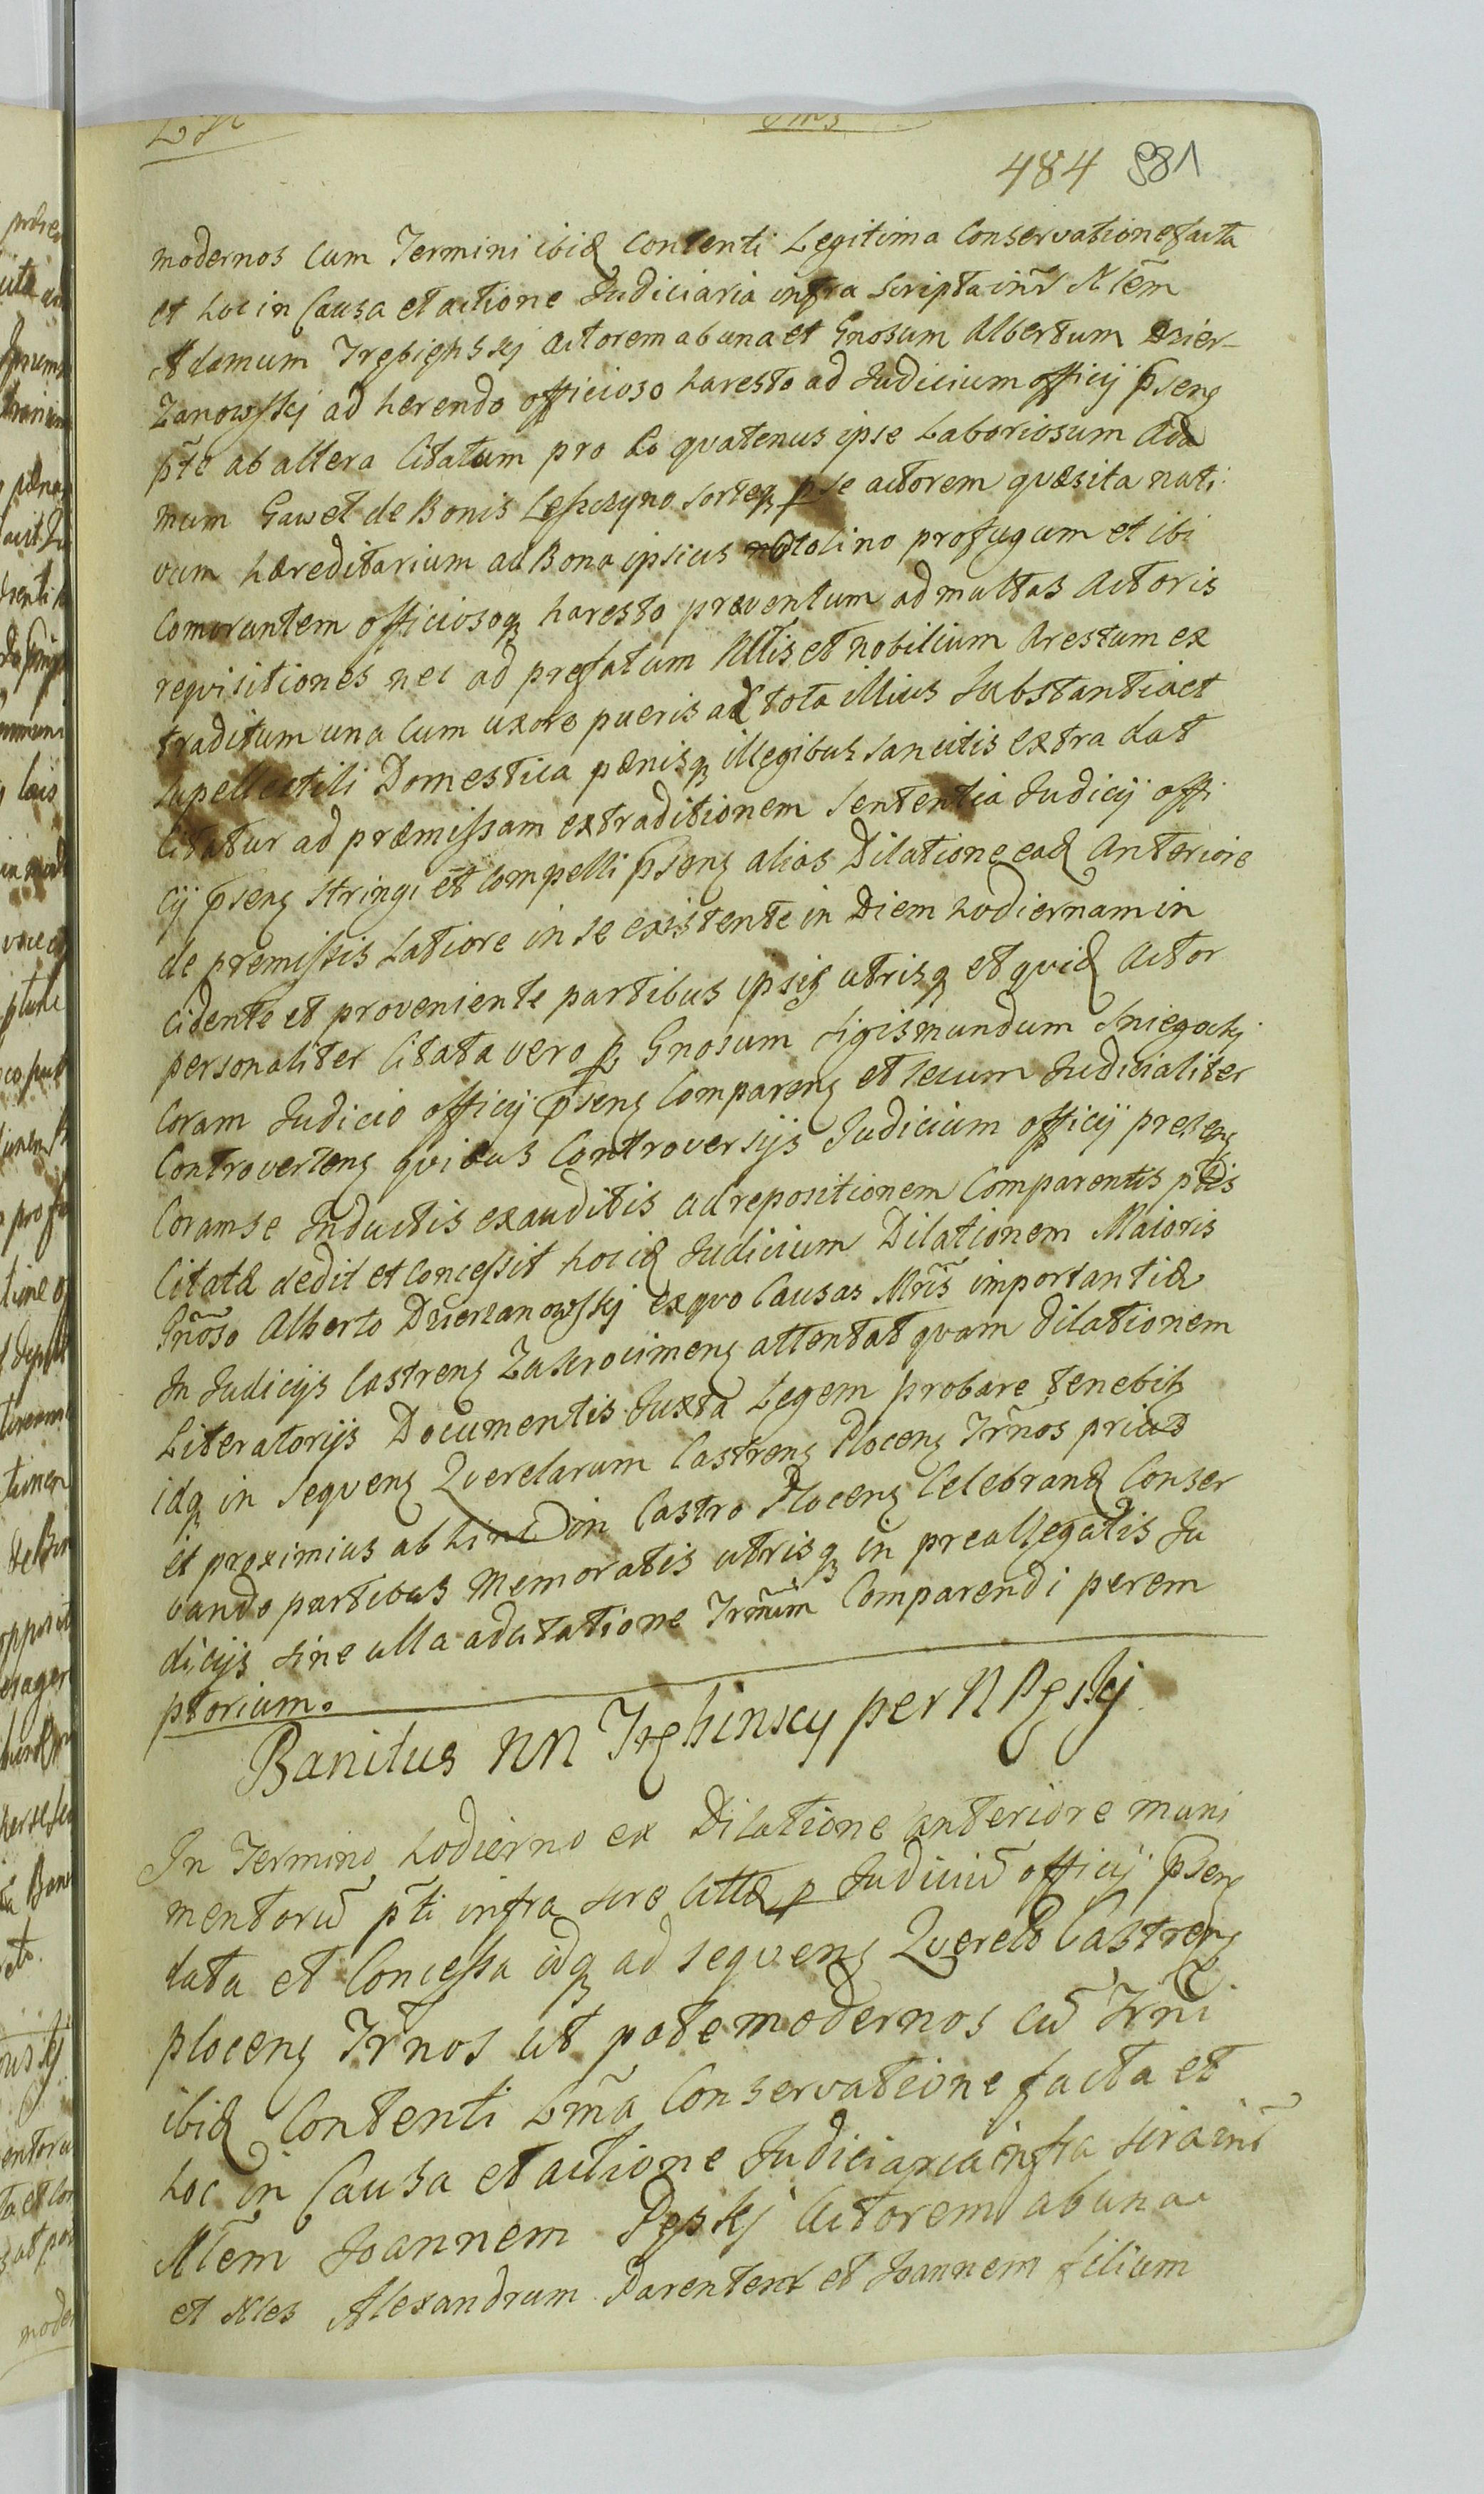 484 981
modernos Cum Termini ibid Contenti Legitima Conservatione facta
et hoc in Causa et actione Judiciaria infra scripta intr Nlem
Adamum Trębiehskj actorem ab una et Gnosum Albertum Dzier-
zanowskj ad hærendo officioso haresto ad Judicium officij psenq
pte ab altera Citatum pro Eo quatenus ipse Laboriosum Ada
mum Gawet de Bonis Leszczyno sorteq p se actorem quæsita nati
vum hæreditarium ad Bona ipsius profugum et ibi
Comorantem officiosoq haresto præventum ad multas Actoris
requisitiones nec ad prefatum Nllis et nobilium Arestum ex
traditum una cum uxore pueris ac tota illius Substantia et
supellectili Domestica pænisq illegibus sancitis extra dat
Citatur ad præmissam extraditionem Sententia Judicij offi
cij psenq stringi et Compelli psenq alias Dilatione ead Anteriore
de premissis Latiore in se existente in Diem hodiernam in
Cidente et proveniente partibus ipsis utrisq et quid Actor
personaliter Citata vero p Gnosum Sigismundum Sniegockj
Coram Judicio officij psenq Comparenq et secum Judicialiter
Controvertenq quibus Controversijs Judicium officij presenq
Coram se Inductis exauditis ad repositionem Comparentis ptis
Citatæ dedit et Concessit hocid Judicium Dilationem Maioris
Gnoso Alberto Dzierzanowskj exquo Causas Mris importantiæ
In Judicijs Castrenq Zakrocimenq attentat quam Dilationem
Literatorijs Documentis Juxta Legem probare tenebitz
idq in sequenq Querelarum Castrenq Plocenq Trnos prius
et proximius ab hinc in Castro Plocenq Celebrand Conser
vando partibus Memoratis utrisq in preallegatis Ju
dicijs sine ulla adcitatione Trmum Comparendi perem
ptorium.
Banitus NN Trębinscy per N Pęskj
In Termino hodierno ex Dilatione anteriore muni
mentorū pti infra scre Cittæ p Judiciū officij psenq
data et Concessa idq ad sequenq Querelæ Castrenq
plocenq Trnos ut pate modernos cū Trni
ibid Contenti Lma Conservatione facta et
hoc in Causa et actione Judiciaria infra scra intr
Nlem Joannem Pęskj Actorem ab una
et Nles Alexandrum Parentem et Joannem filium